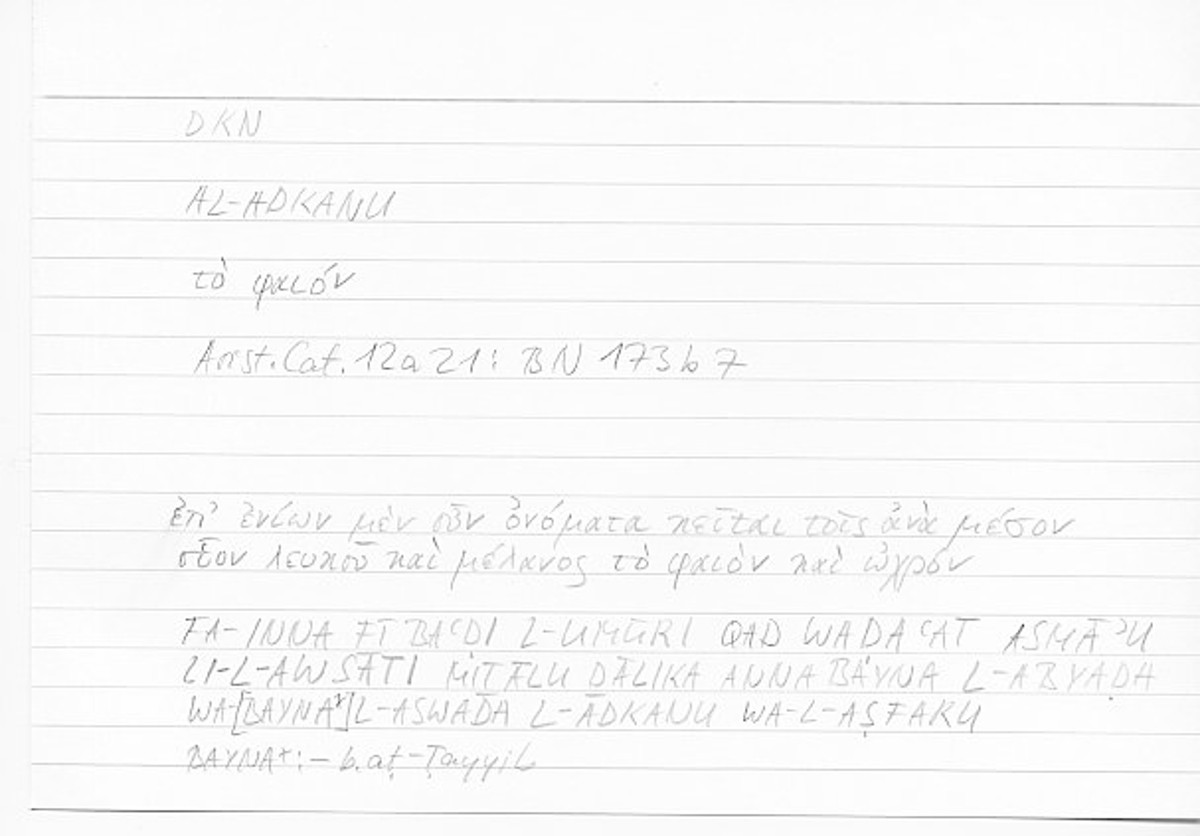 DKN
AL-ADKANU
τὸ φαιόν
Arist. Cat. 12a21: BN 173b7
ἐπ' ἐνίων μὲν οὖν ὀνόματα κεῖται τοῖς ἀνὰ μέσον
οἷον λευκοῦ καὶ μέλανος τὸ φαιὸν καὶ ὠχρόν
FA-INNA FĪ BAʿDI L-UMŪRI QAD WADAʿAT ASMĀʾU
LI-L-AWSĀTI MITĀLU DĀLIKA ANNA BAYNA L-ABYAḌA
WA-[BAYNA*]L-ASWADA L-ADKANU WA-L-AṢFARU
BAYNA*: – b. aṭ-Ṭayyib